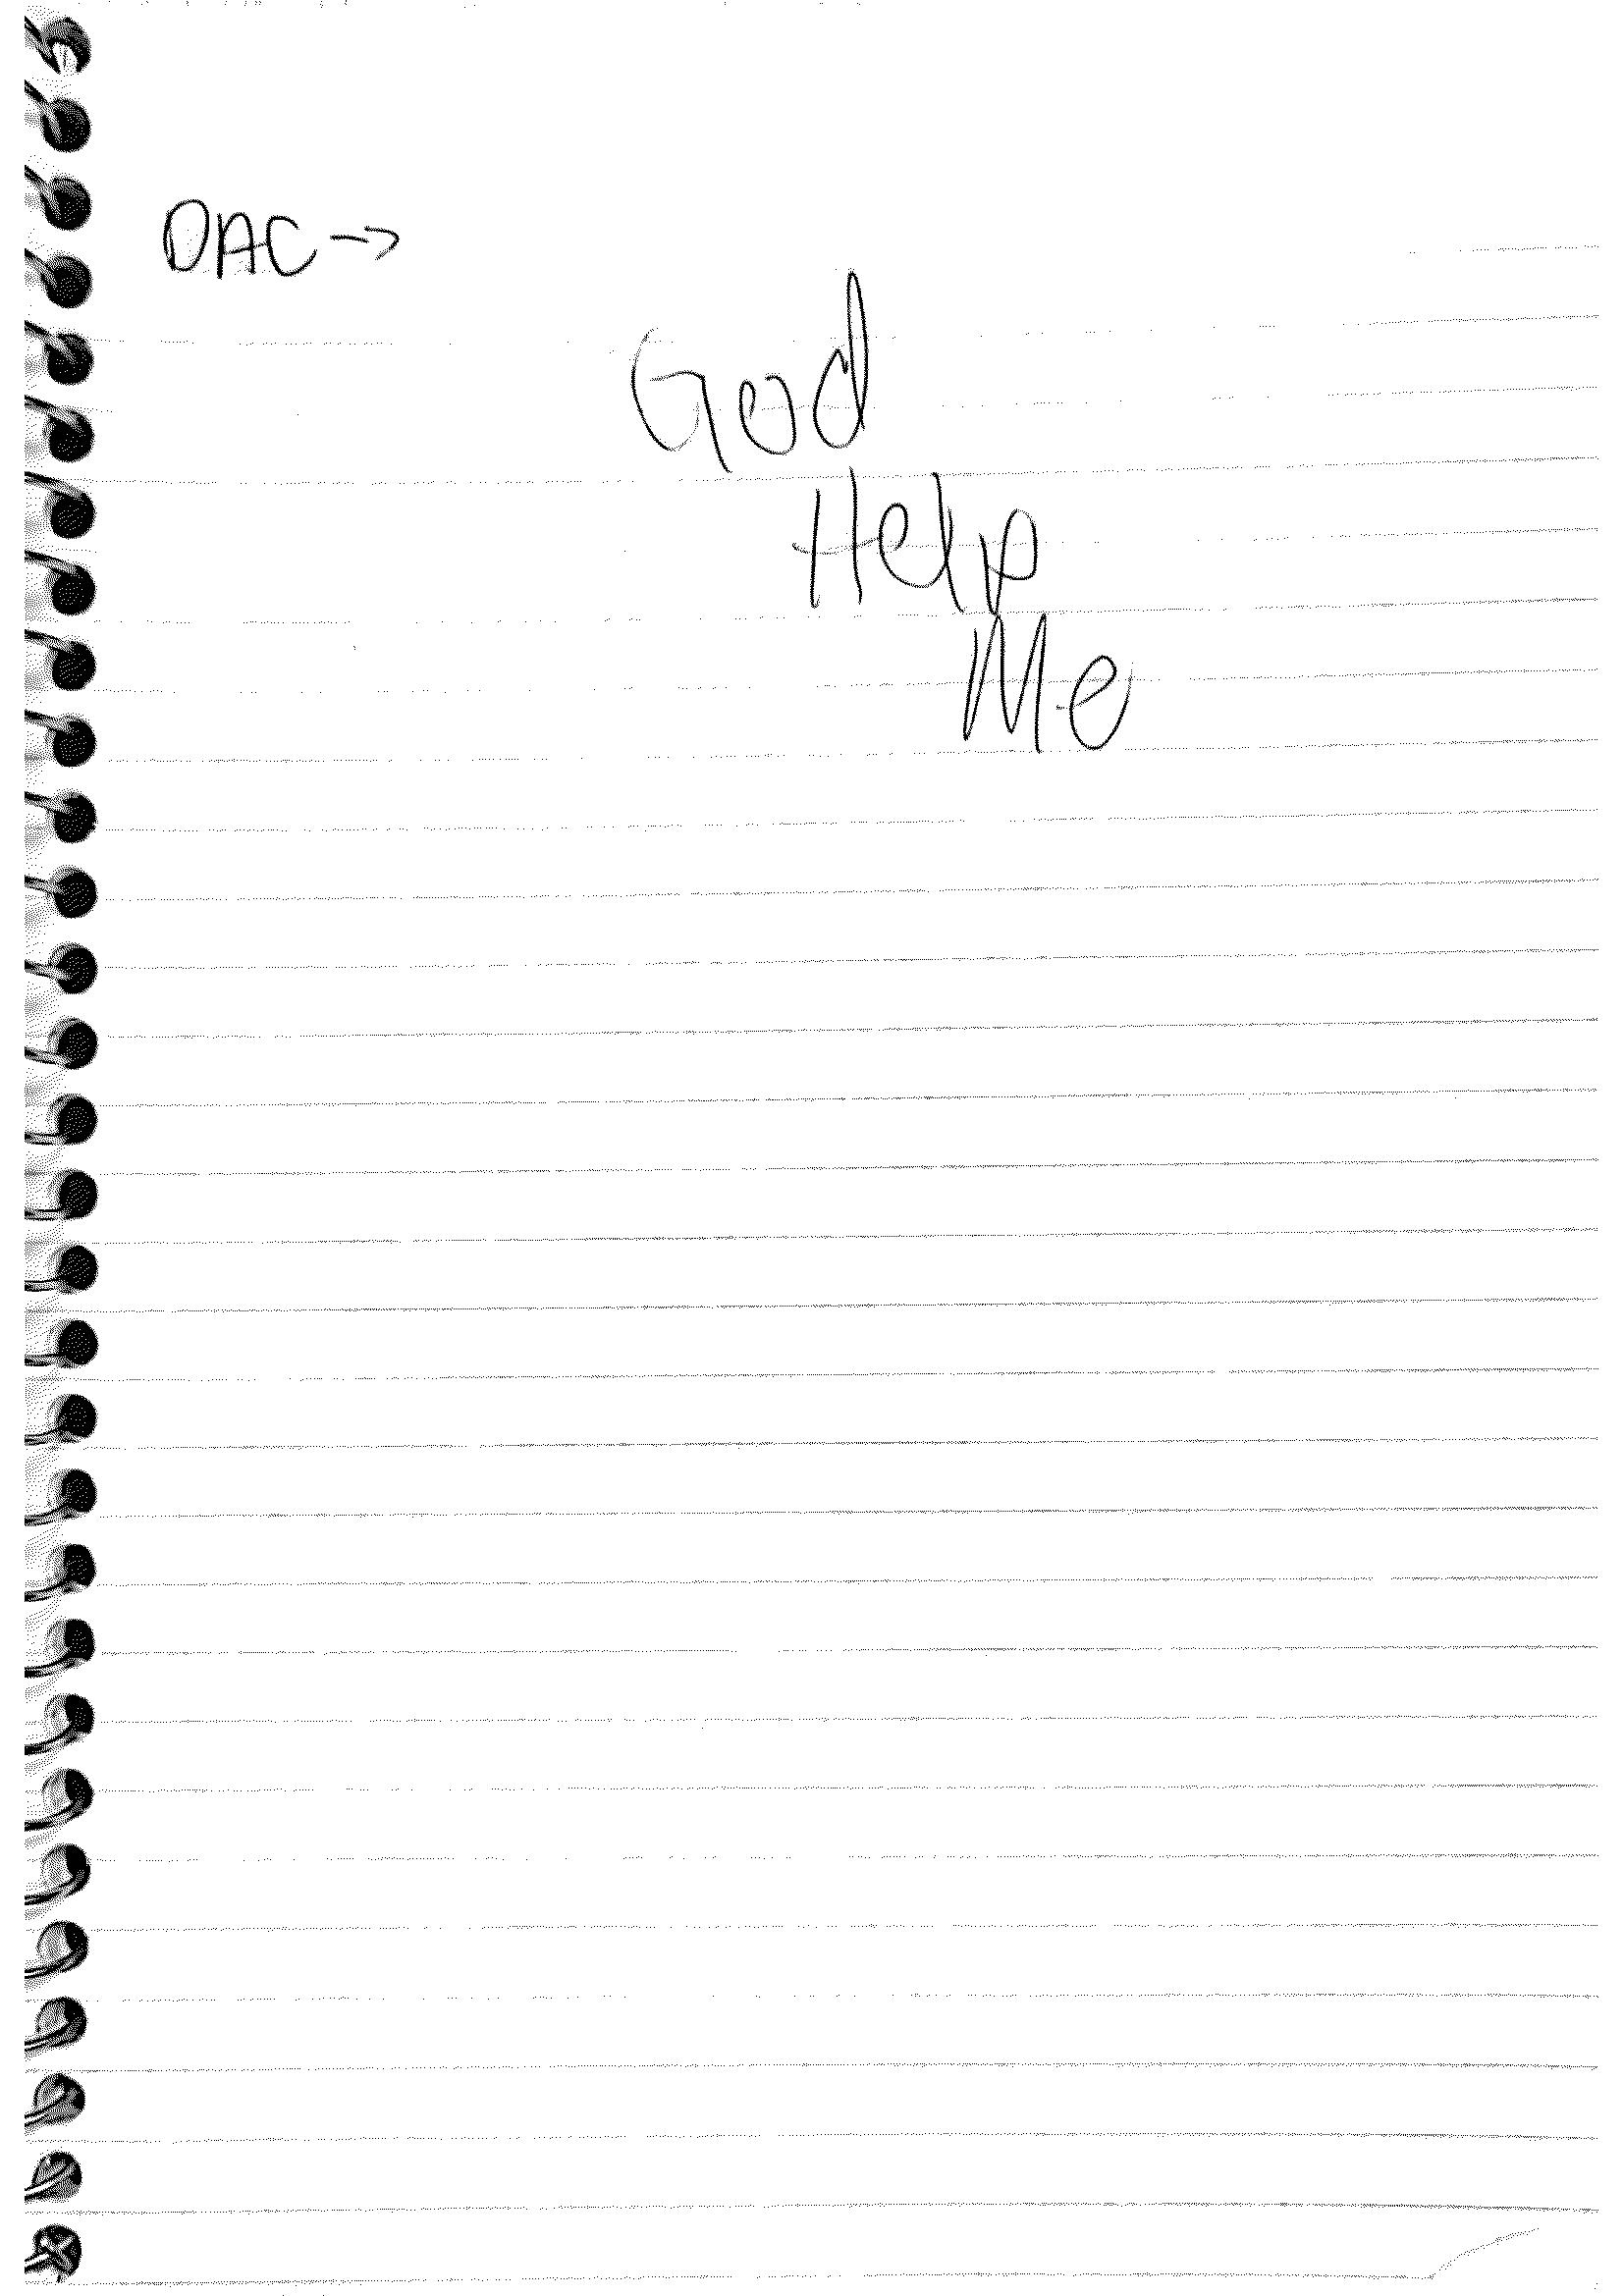 DAC →
God
Help
Me